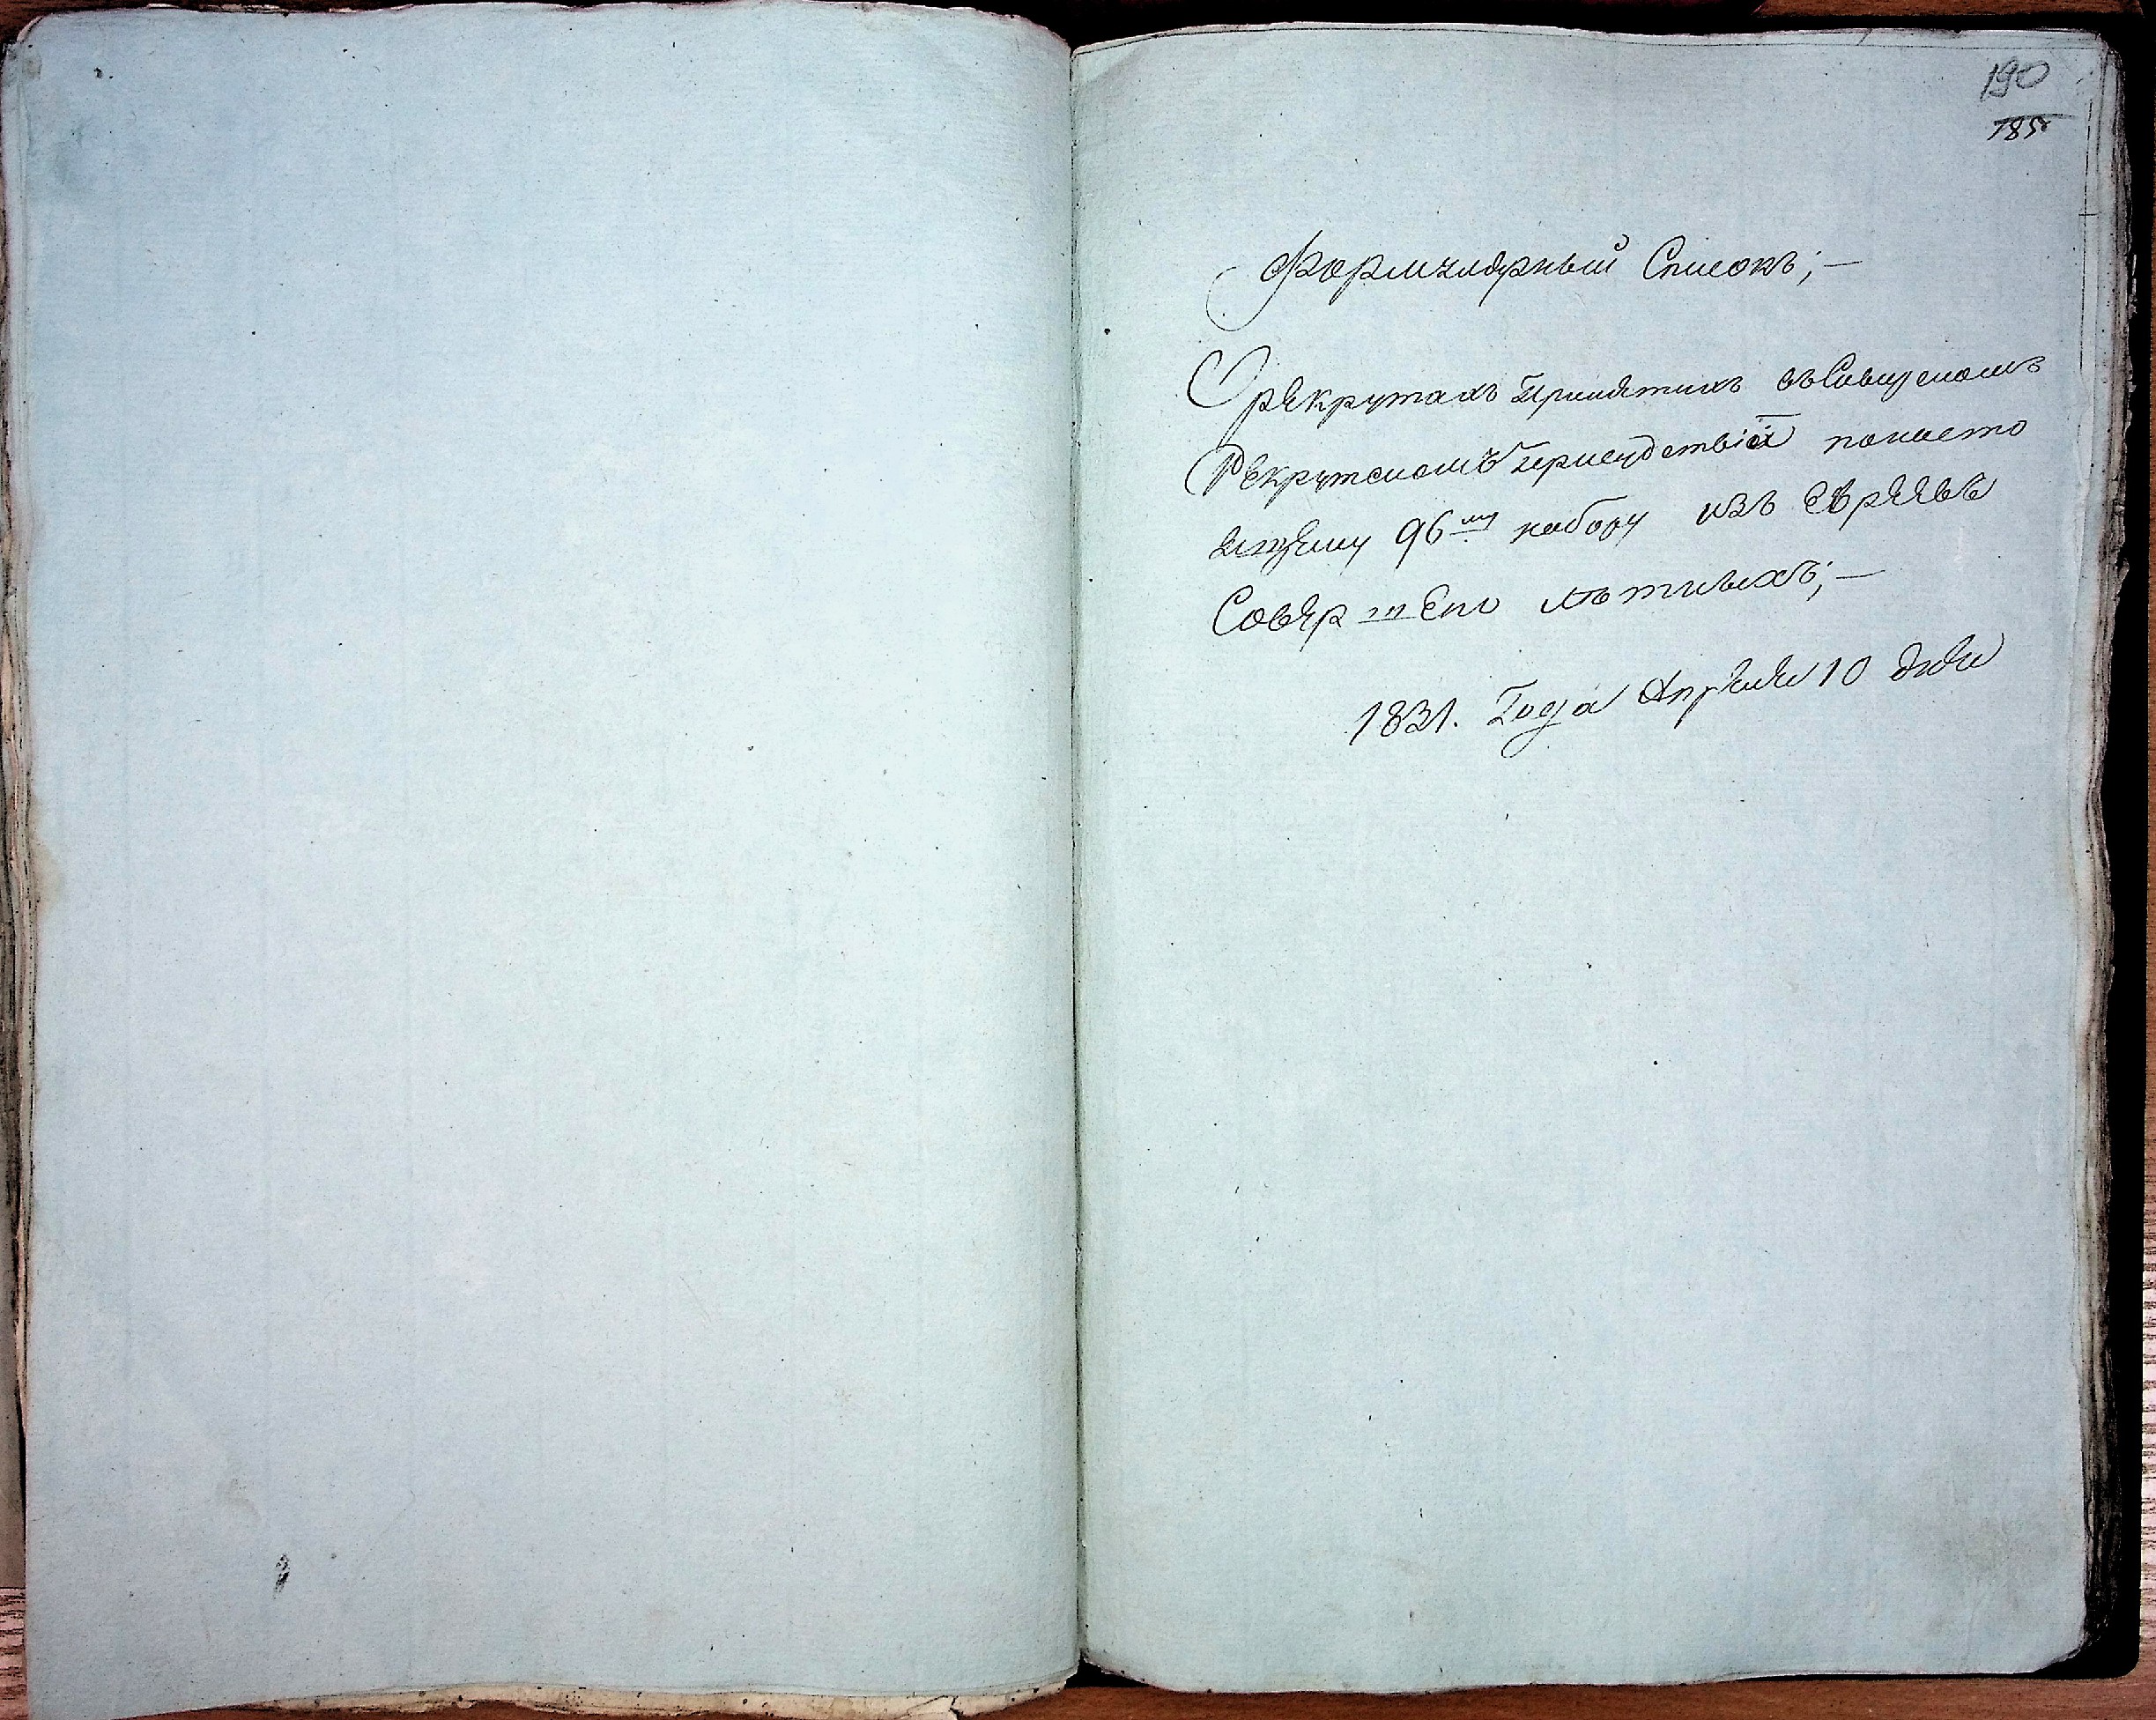 190
185
Формулярный Списокъ;—
О рекрутахъ принятихъ въ
Рекрутскомъ присудствіи понасто
ящему 96му набору изъ Евреевъ
Совершенно лѣтныхъ;—
1831. Года Апреля 10 дня